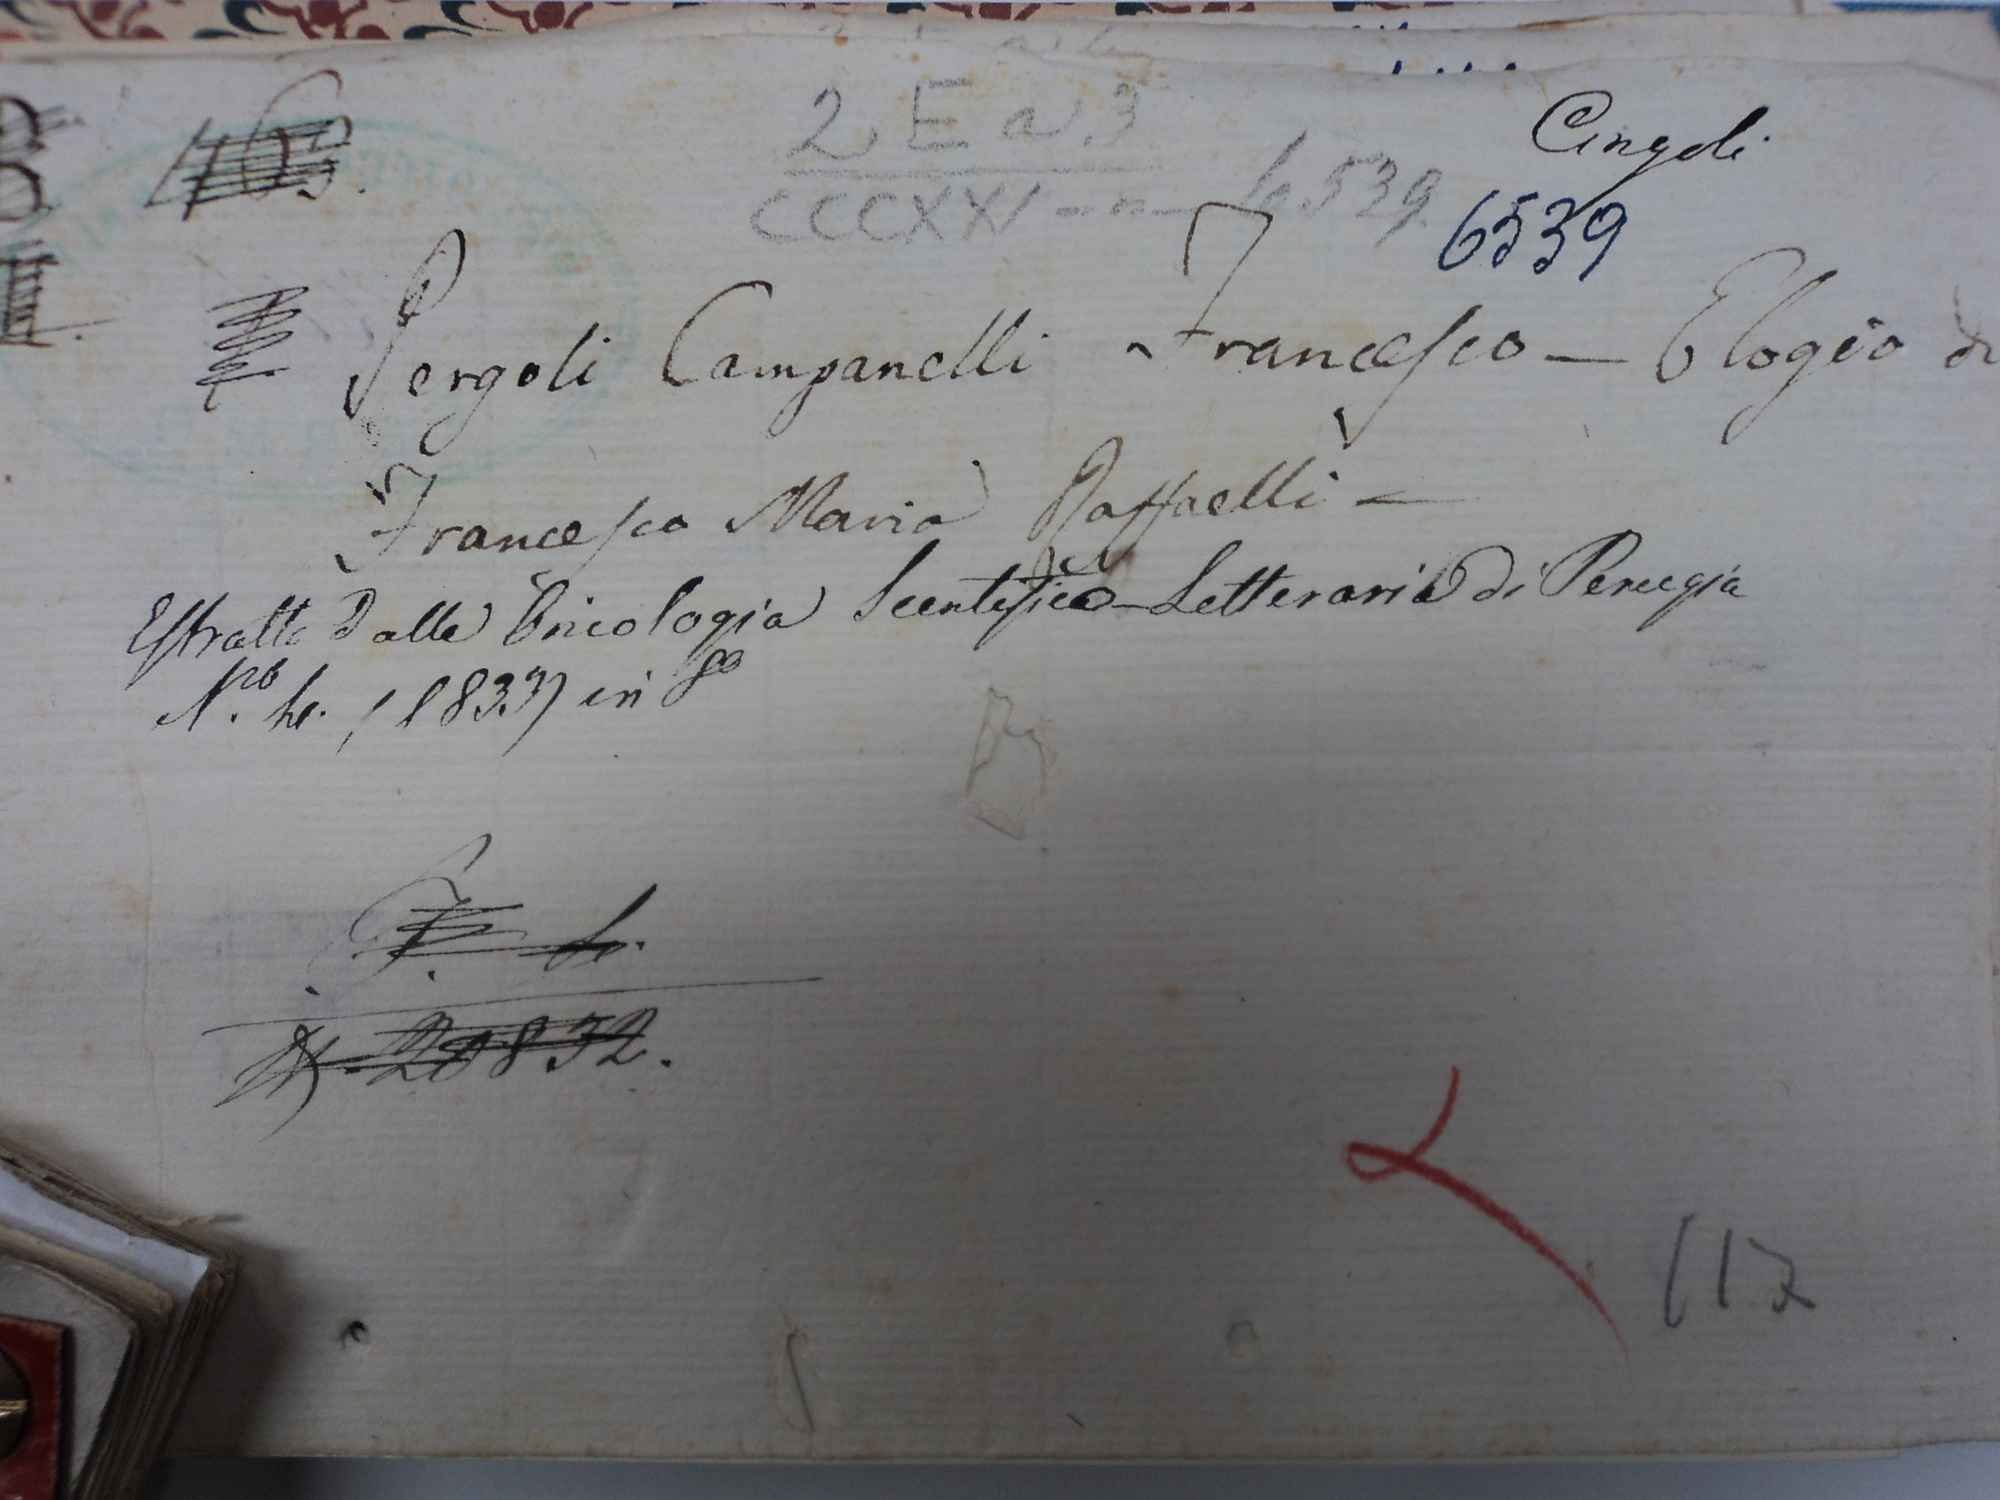 2 E a. 3
Cingoli
CCCXXI - n - 6539.
6539
Pergoli Campanelli Francesco — Elogio di
Francesco Maria Raffaelli —
Estratto Dalla Oricologia Scentifico-Letteraria di Perugia
N.ro 4. (1833) in 8º
20832.
117